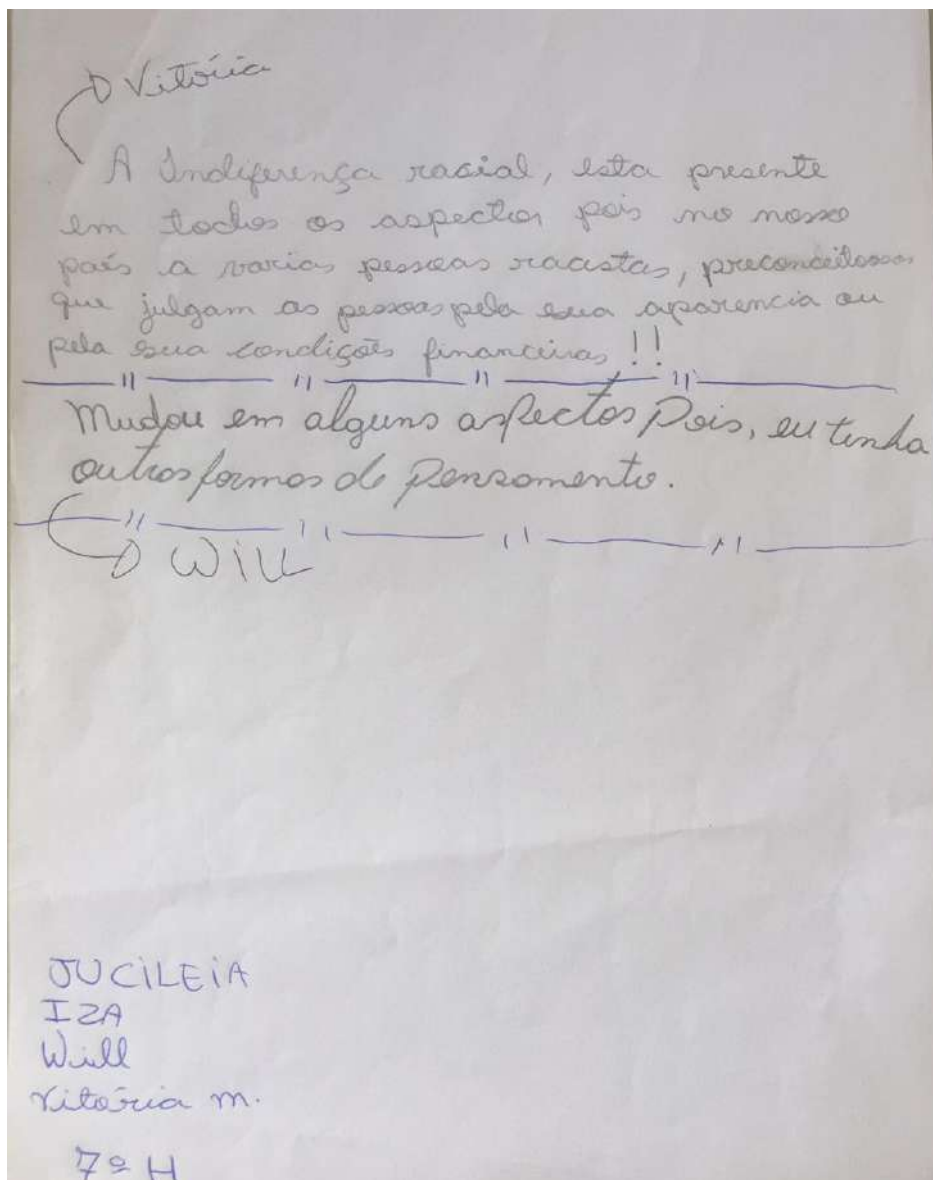 Vitória
A Indiferença racial, esta presente
em todos os aspectos pois no nosso
país a varias pessoas racistas, preconceituosas
que julgam as pessoas pela sua aparencia ou
pela sua condições financeiras !!
Mudou em alguns aspectos Pois, eu tinha
outras formas de Pensamento.
Will
JUCILEIA
IZA
Will
Vitória m.
7º H